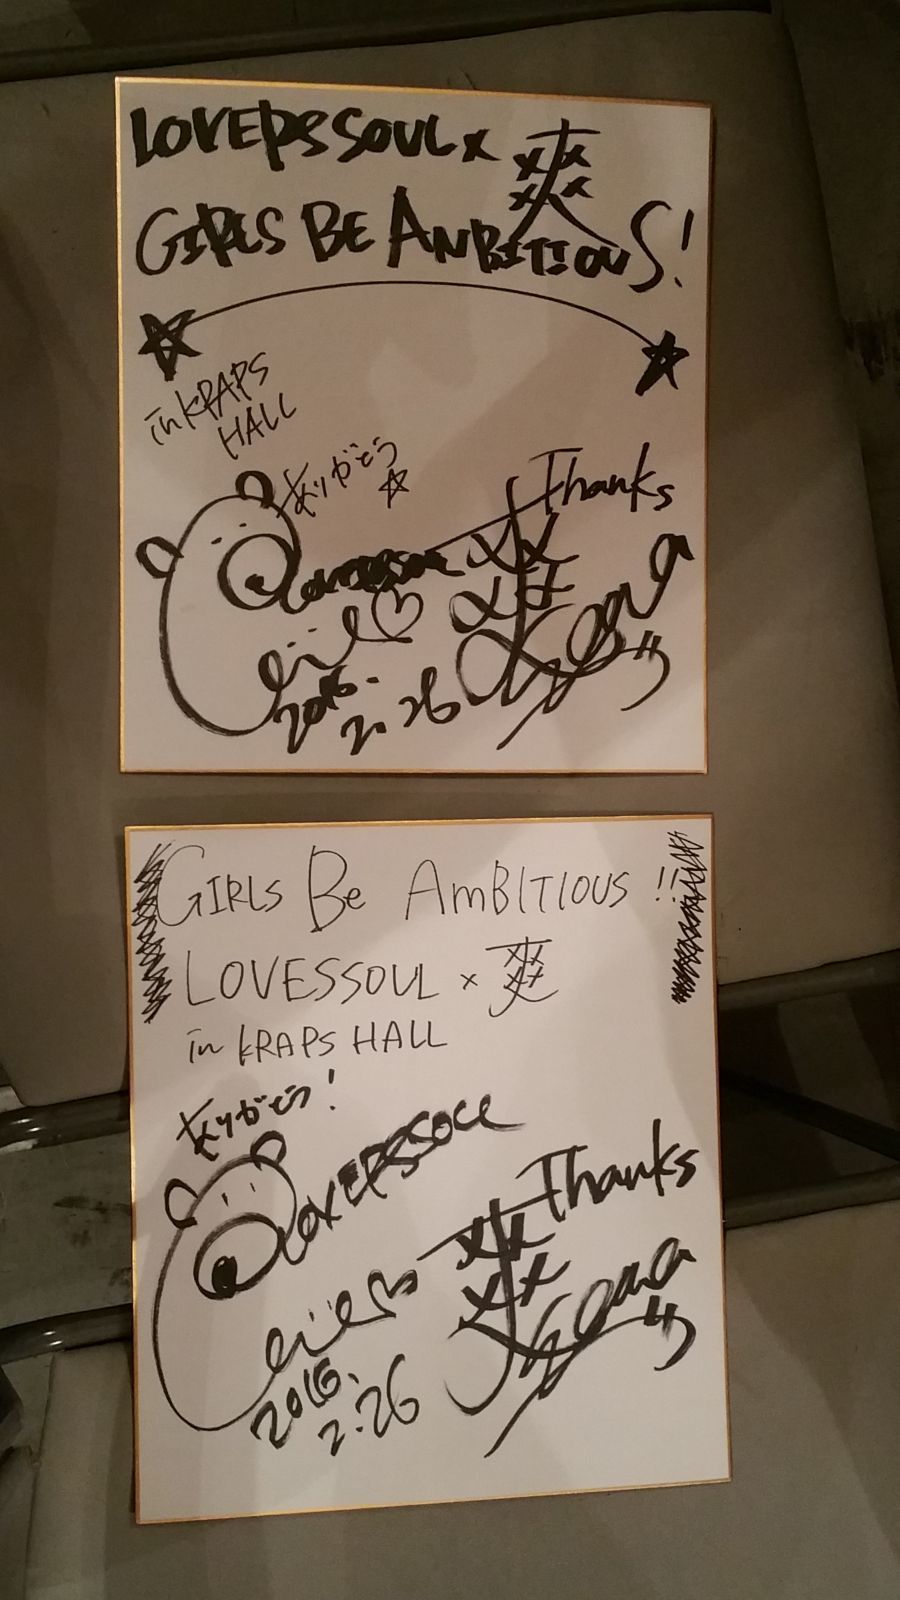 LOVERSSOUL × 爽
GIRLS BE AMBITIOUS!
in KRAPS
HALL
ありがとう
Thanks
Loverssoul
爽
2016.
2.26
GIRLS Be AmBITIOUS!!
LOVESSOUL × 爽
in KRAPS HALL
ありがとう!
Loverssoul
Thanks
爽
2016.
2.26